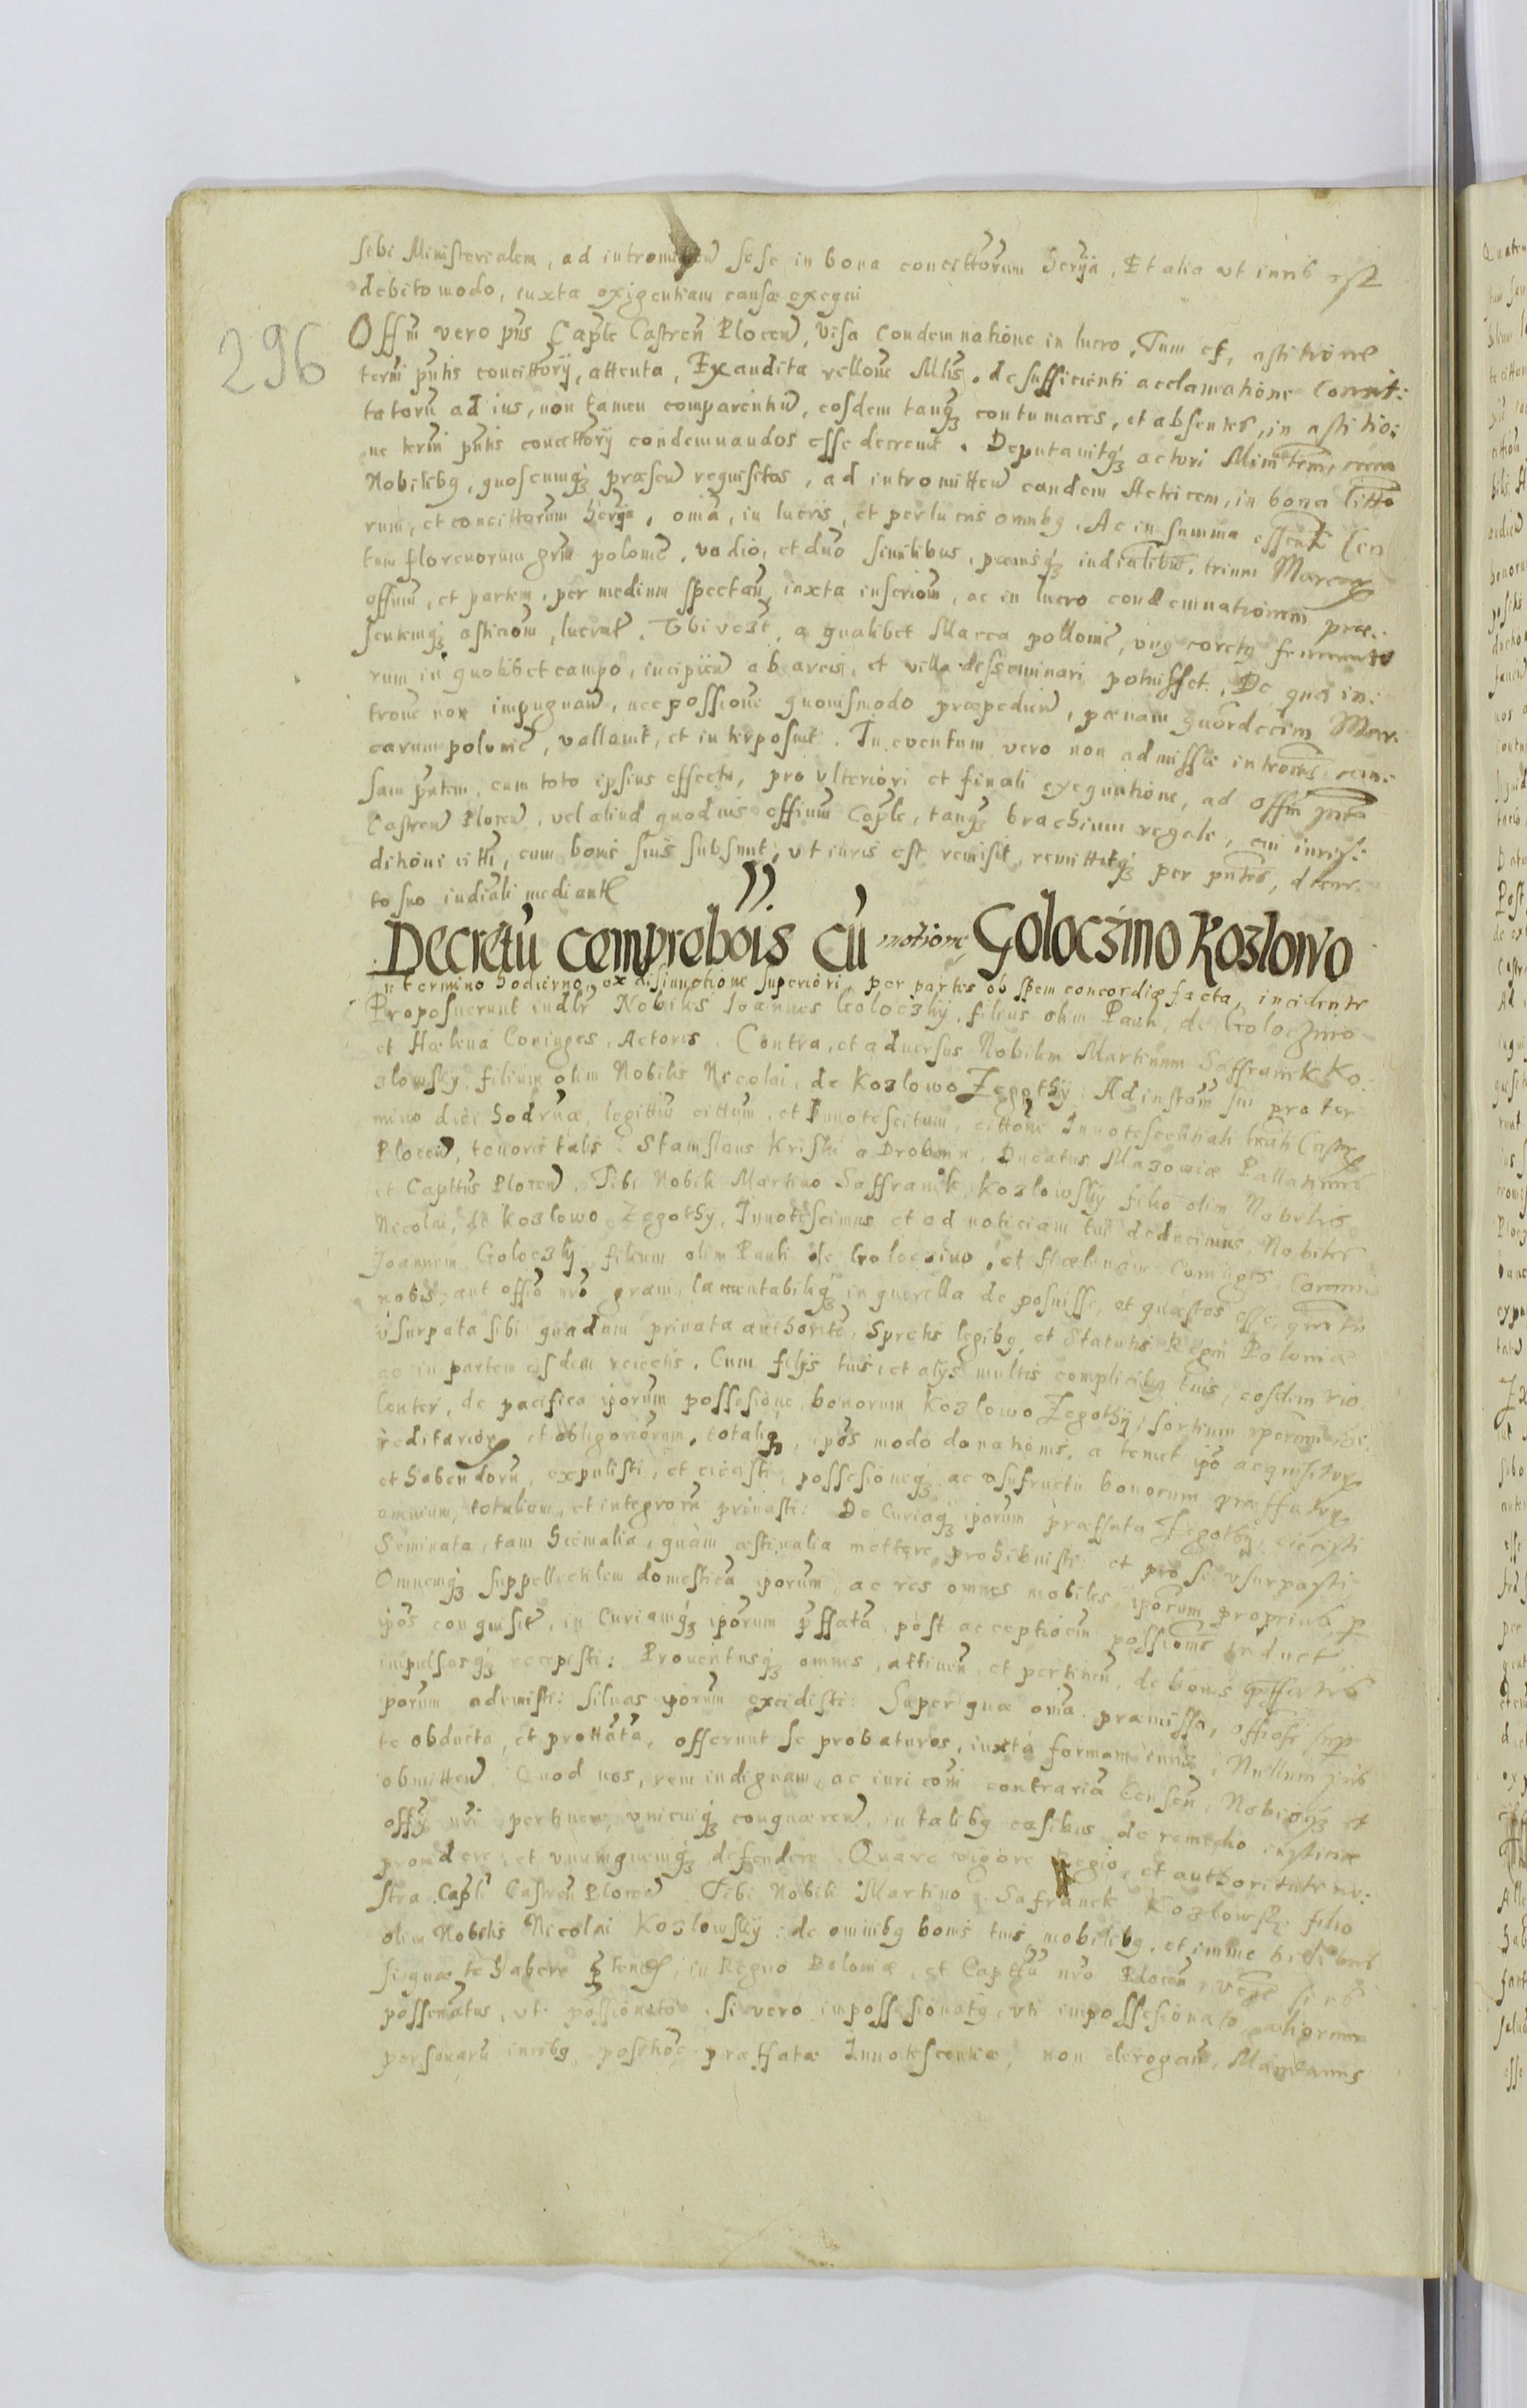 296
sibi Ministerialem, ad intromitten sese in bona concittorum herya, Et alia ut iuris est
debito modo, iuxta exigentiam causæ exequi
Offm vero pns Caple Castren Plocen, visa condemnatione in lucro, Tum et, astitione
termi pntis concittorij, attenta, Exaudita rellone Mlis, de sufficienti acclamatione Concit:
tatoru ad ius, non tamen comparentiu, eosdem tanqʒ contumaces, et absentes, in astitio:
ne termi pntis concittorij condemnandos esse decrevit. Deputavitqʒ actori Minitem, cum
Nobilibʒ, quoscumqʒ præsen requisitos, ad intromitten eandem Actricem, in bona citto
rum, et concittorum herya, omia, in lucris, et per lucris omnibʒ. Ac in summa
tum florenorum grm polone, vadio, et duo similibus, pænisqʒ indialibus, trium Marcar
offium, et partem, per medium spectan, iuxta inscriom, ac in lucro condemnationem præ:
sentemqʒ asticiom, lucrat. Ubi a qualibet Marca pollonie, unʒ coretʒ
rum in quolibet campo, incipien ab arcis, et villa desseminari potuisset. De qua in:
trone non impugnan, nec possione quovismodo præpedien, pænam quordecim Mar:
carum polonie, vallavit, et interposuit. In eventum vero non admissæ intronis, cau:
sam pntem, cum toto ipsius effectu, pro ulteriori et finali exequutione, ad offm pnts
Castren Plocen, vel aliud quodvis offium Caple, tanqʒ brachium regale, cui iuris:
dihoni citti, cum bonis suis subsunt, ut iuris est remisit, remittitqʒ per pntes, decre:
to suo iudiali mediante
Decretu comprebois cu notione, Goloczino Kozlowo
In termino hodierno, ex disiunctione superiori, per partes ob spem concordiæ facta, incidente
Proposuerunt indlr Nobiles Ioannes Goloczkij, filius olim Pauli, de Goloczino
et Hælena Coniuges, Actores. Contra, et adversus Nobilem Martinum Saffranek Ko:
zlowsky, filium olim Nobilis Nicolai, de Kozlowo Zegothy: Ad instom sui pro ter
mino diei hodrnæ, legittiu cittum, et Innotescitum, cittone Innotescentiali Castr
Plocen, tenoris talis. Stanislaus Kriski a Drobnin, Ducatus Mazowiæ Pallatinus
et Capttus Plocen, Tibi Nobili Martino Saffranik Kozlowsky filio olim Nobilis
Nicolai, de Kozlowo Zegothy, Innotescimus et ad noticiam tui deducimus, Nobiles
Joannem Goloczky, filium olim Pauli de Goloczino, et Hælenam Coniuges, Coram
nobis, aut offio nro gram, lamentabiliqʒ in querella de posuisse, et quæstos esse,
usurpata sibi quadam privata authorite, Spretis legibʒ et Statutis Regni Poloniæ
ac in partem eisdem reiectis. Cum filijs tuis, et alijs multis complicibʒ tuis, eosdem vio
lenter, de pacifica iporum possessione, bonorum Kozlowo Zegothy, sortium
reditarior, et obligoriorum, totaliqʒ, ipos modo donationis, a temet ipo acquisitor
et habendoru, expulisti, et eiecasti, possesioneqʒ ac usufructu bonorum præffator
omnium, totalium, et integroru privasti: De Curiaqʒ iporum præffata Zegothy, eiecisti
Seminata, tam hiemalia, quam æstivalia mettere, prohibuisti, et pro se usurpasti
Omnemqʒ suppellectilem domestica iporum, ac res omnes mobiles, iporum proprias, p
ipos conquisit, in Curiamqʒ iporum pffata, post acceptiocm possionis induct
impulsasqʒ recepisti: Proventusqʒ omnes, attinen, et pertinen, de bonis pffatis
iporum ademisti: silvas iporum excidisti: Super quæ omia præmissa, offiose sup
te obducta, et prottata, offerunt se probaturos, iuxta formam iuris, Nullum iuris
obmitten. Quod nos, rem indignam, ac iuri com contraria Censen, Nobisqʒ et
offij nri pertinere, unicuiqʒ conquæren, in talibʒ casibus, de remedio iusticiæ
providere, et unumquemqʒ defendere. Quare vigore Regio, et authoritate no:
stra Capli Castren Plocen. Tibi Nobili Martino Safranek Kozlowsky filio
olim Nobilis Nicolai Kozlowsky: de omnibʒ bonis tuis, mobilibʒ, et immobilibus
siquæ te habere ptendes, in Regno Poloniæ, et Capttu nro Plocen,
possenatus, ut possionato. si vero impossesionatʒ, uti impossesionato, aligrum
personaru iuribʒ, posthoc præffatæ Innotescentiæ, non derogan, Mandamus